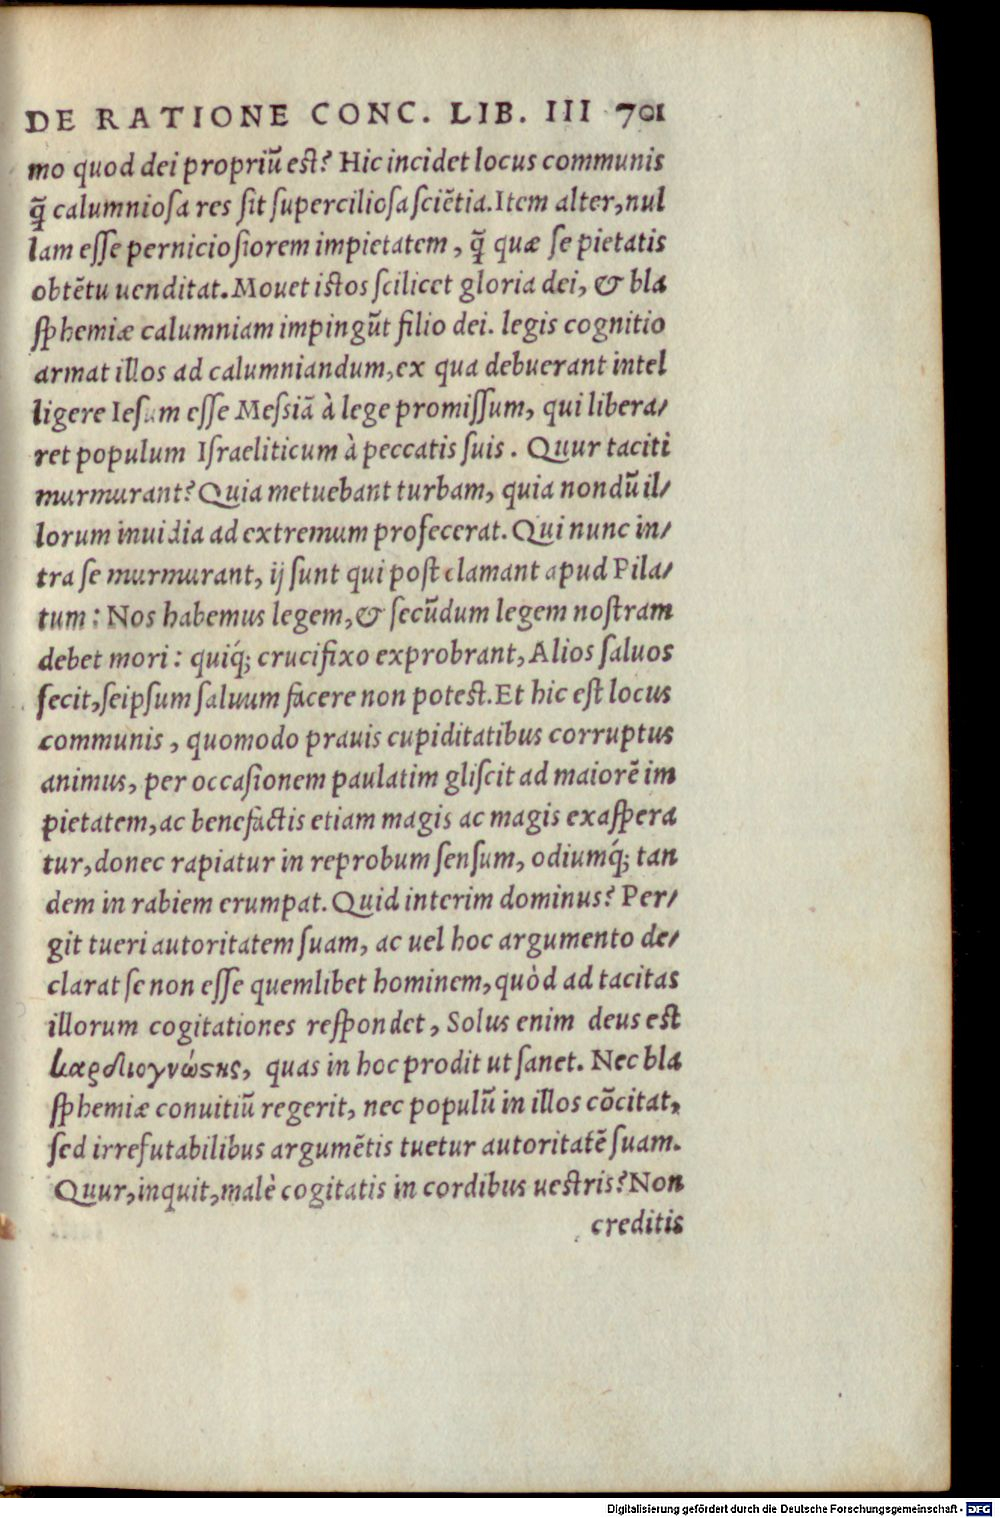 DE RATIONE CONC. LIB. III 701
mo quod dei propriũ est? Hic incidet locus communis
q̃ calumniosa res sit superciliosa sciẽtia. Item alter, nul
lam esse perniciosiorem impietatem, q̃ quæ se pietatis
obtẽtu uenditat. Mouet istos scilicet gloria dei, & bla
sphemiæ calumniam impingũt filio dei. legis cognitio
armat illos ad calumniandum, ex qua debuerant intel
ligere Iesum esse Messiã à lege promissum, qui libera/
ret populum Israeliticum à peccatis suis. Quur taciti
murmurant? Quia metuebant turbam, quia nondũ il/
lorum inuidia ad extremum profecerat. Qui nunc in/
tra se murmurant, ij sunt qui post clamant apud Pila/
tum: Nos habemus legem, & secũdum legem nostram
debet mori: quiq́; crucifixo exprobrant, Alios saluos
fecit, seipsum saluum facere non potest. Et hic est locus
communis, quomodo prauis cupiditatibus corruptus
animus, per occasionem paulatim gliscit ad maiorẽ im
pietatem, ac benefactis etiam magis ac magis exaspera
tur, donec rapiatur in reprobum sensum, odiumq́; tan
dem in rabiem erumpat. Quid interim dominus? Per/
git tueri autoritatem suam, ac uel hoc argumento de/
clarat se non esse quemlibet hominem, quòd ad tacitas
illorum cogitationes respondet, Solus enim deus est
καρδιογνώστης, quas in hoc prodit ut sanet. Nec bla
sphemiæ conuitiũ regerit, nec populũ in illos cõcitat,
sed irrefutabilibus argumẽtis tuetur autoritatẽ suam.
Quur, inquit, malè cogitatis in cordibus uestris? Non
creditis
Digitalisierung gefördert durch die Deutsche Forschungsgemeinschaft - DFG